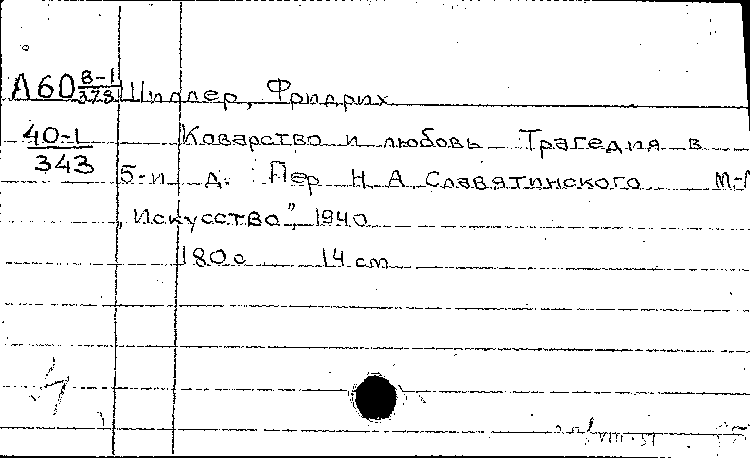 А60 В-1/373 Шиллер, Фридрих
40-1/343 Коварство и любовь Трагедия в
5-и д. Пер Н А Славятинского М-Л
„Искусство", 1940
180 с 14 cm